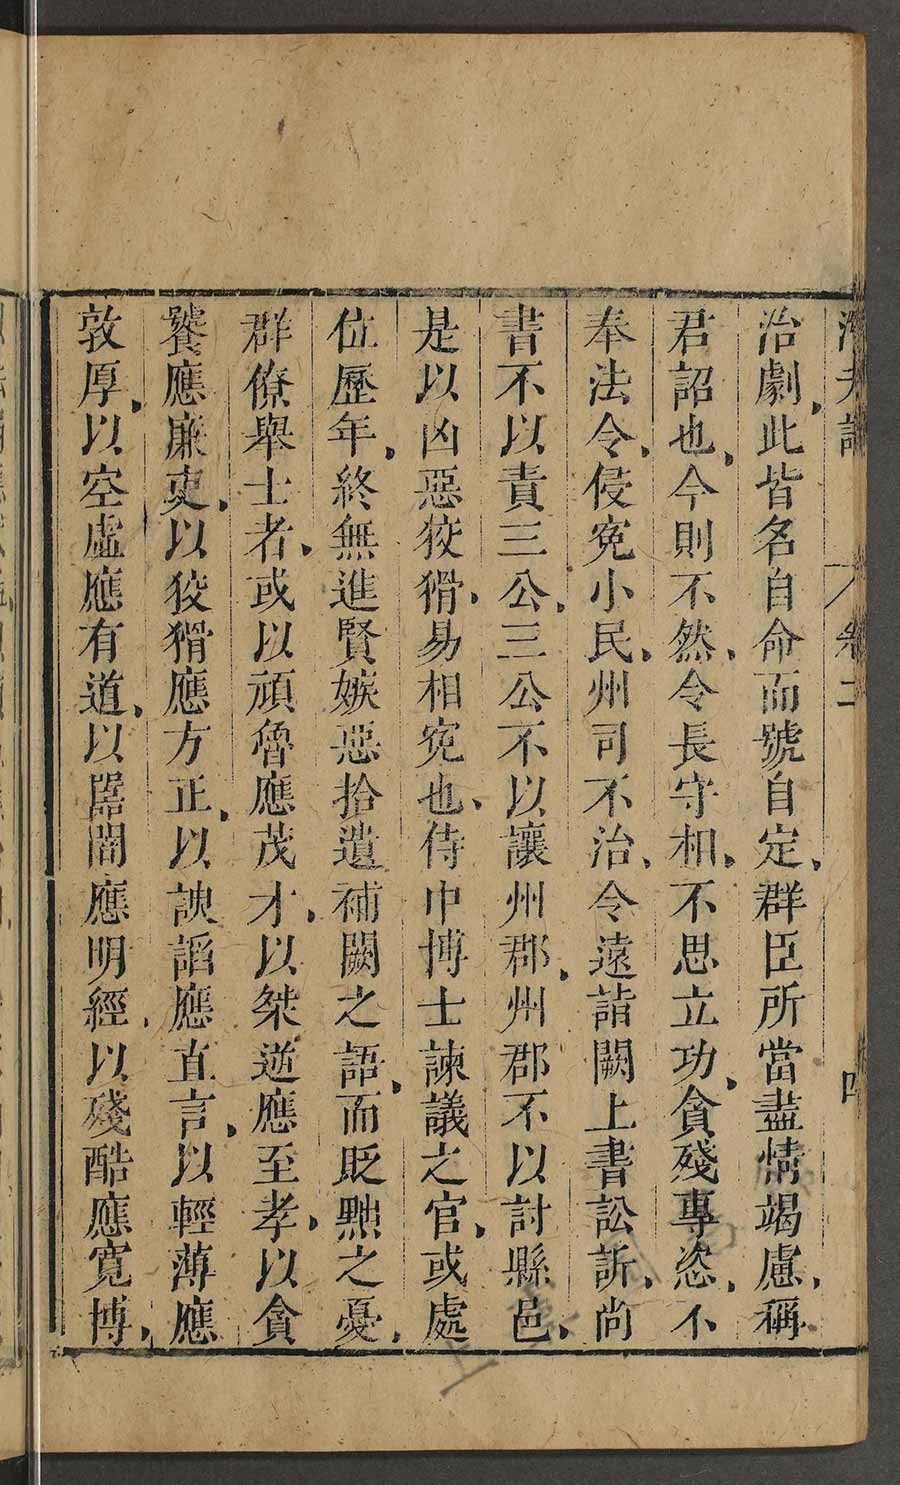 潛夫論 卷二 四
治劇、此皆名自命而號自定、群臣所當盡情竭慮、稱
君詔也、今則不然、令長守相、不思立功、貪殘專恣、不
奉法令、侵寃小民、州司不治、令遠詣闕上書訟訴、尚
書不以責三公、三公不以讓州郡、州郡不以討縣邑、
是以凶惡狡猾、易相寃也、侍中博士諫議之官、或處
位歷年、終無進賢嫉惡拾遺補闕之語、而貶黜之憂、
群僚舉士者、或以頑魯應茂才、以桀逆應至孝、以貪
饕應廉吏、以狡猾應方正、以諛諂應直言、以輕薄應
敦厚、以空虛應有道、以嚚闇應明經、以殘酷應寛博、